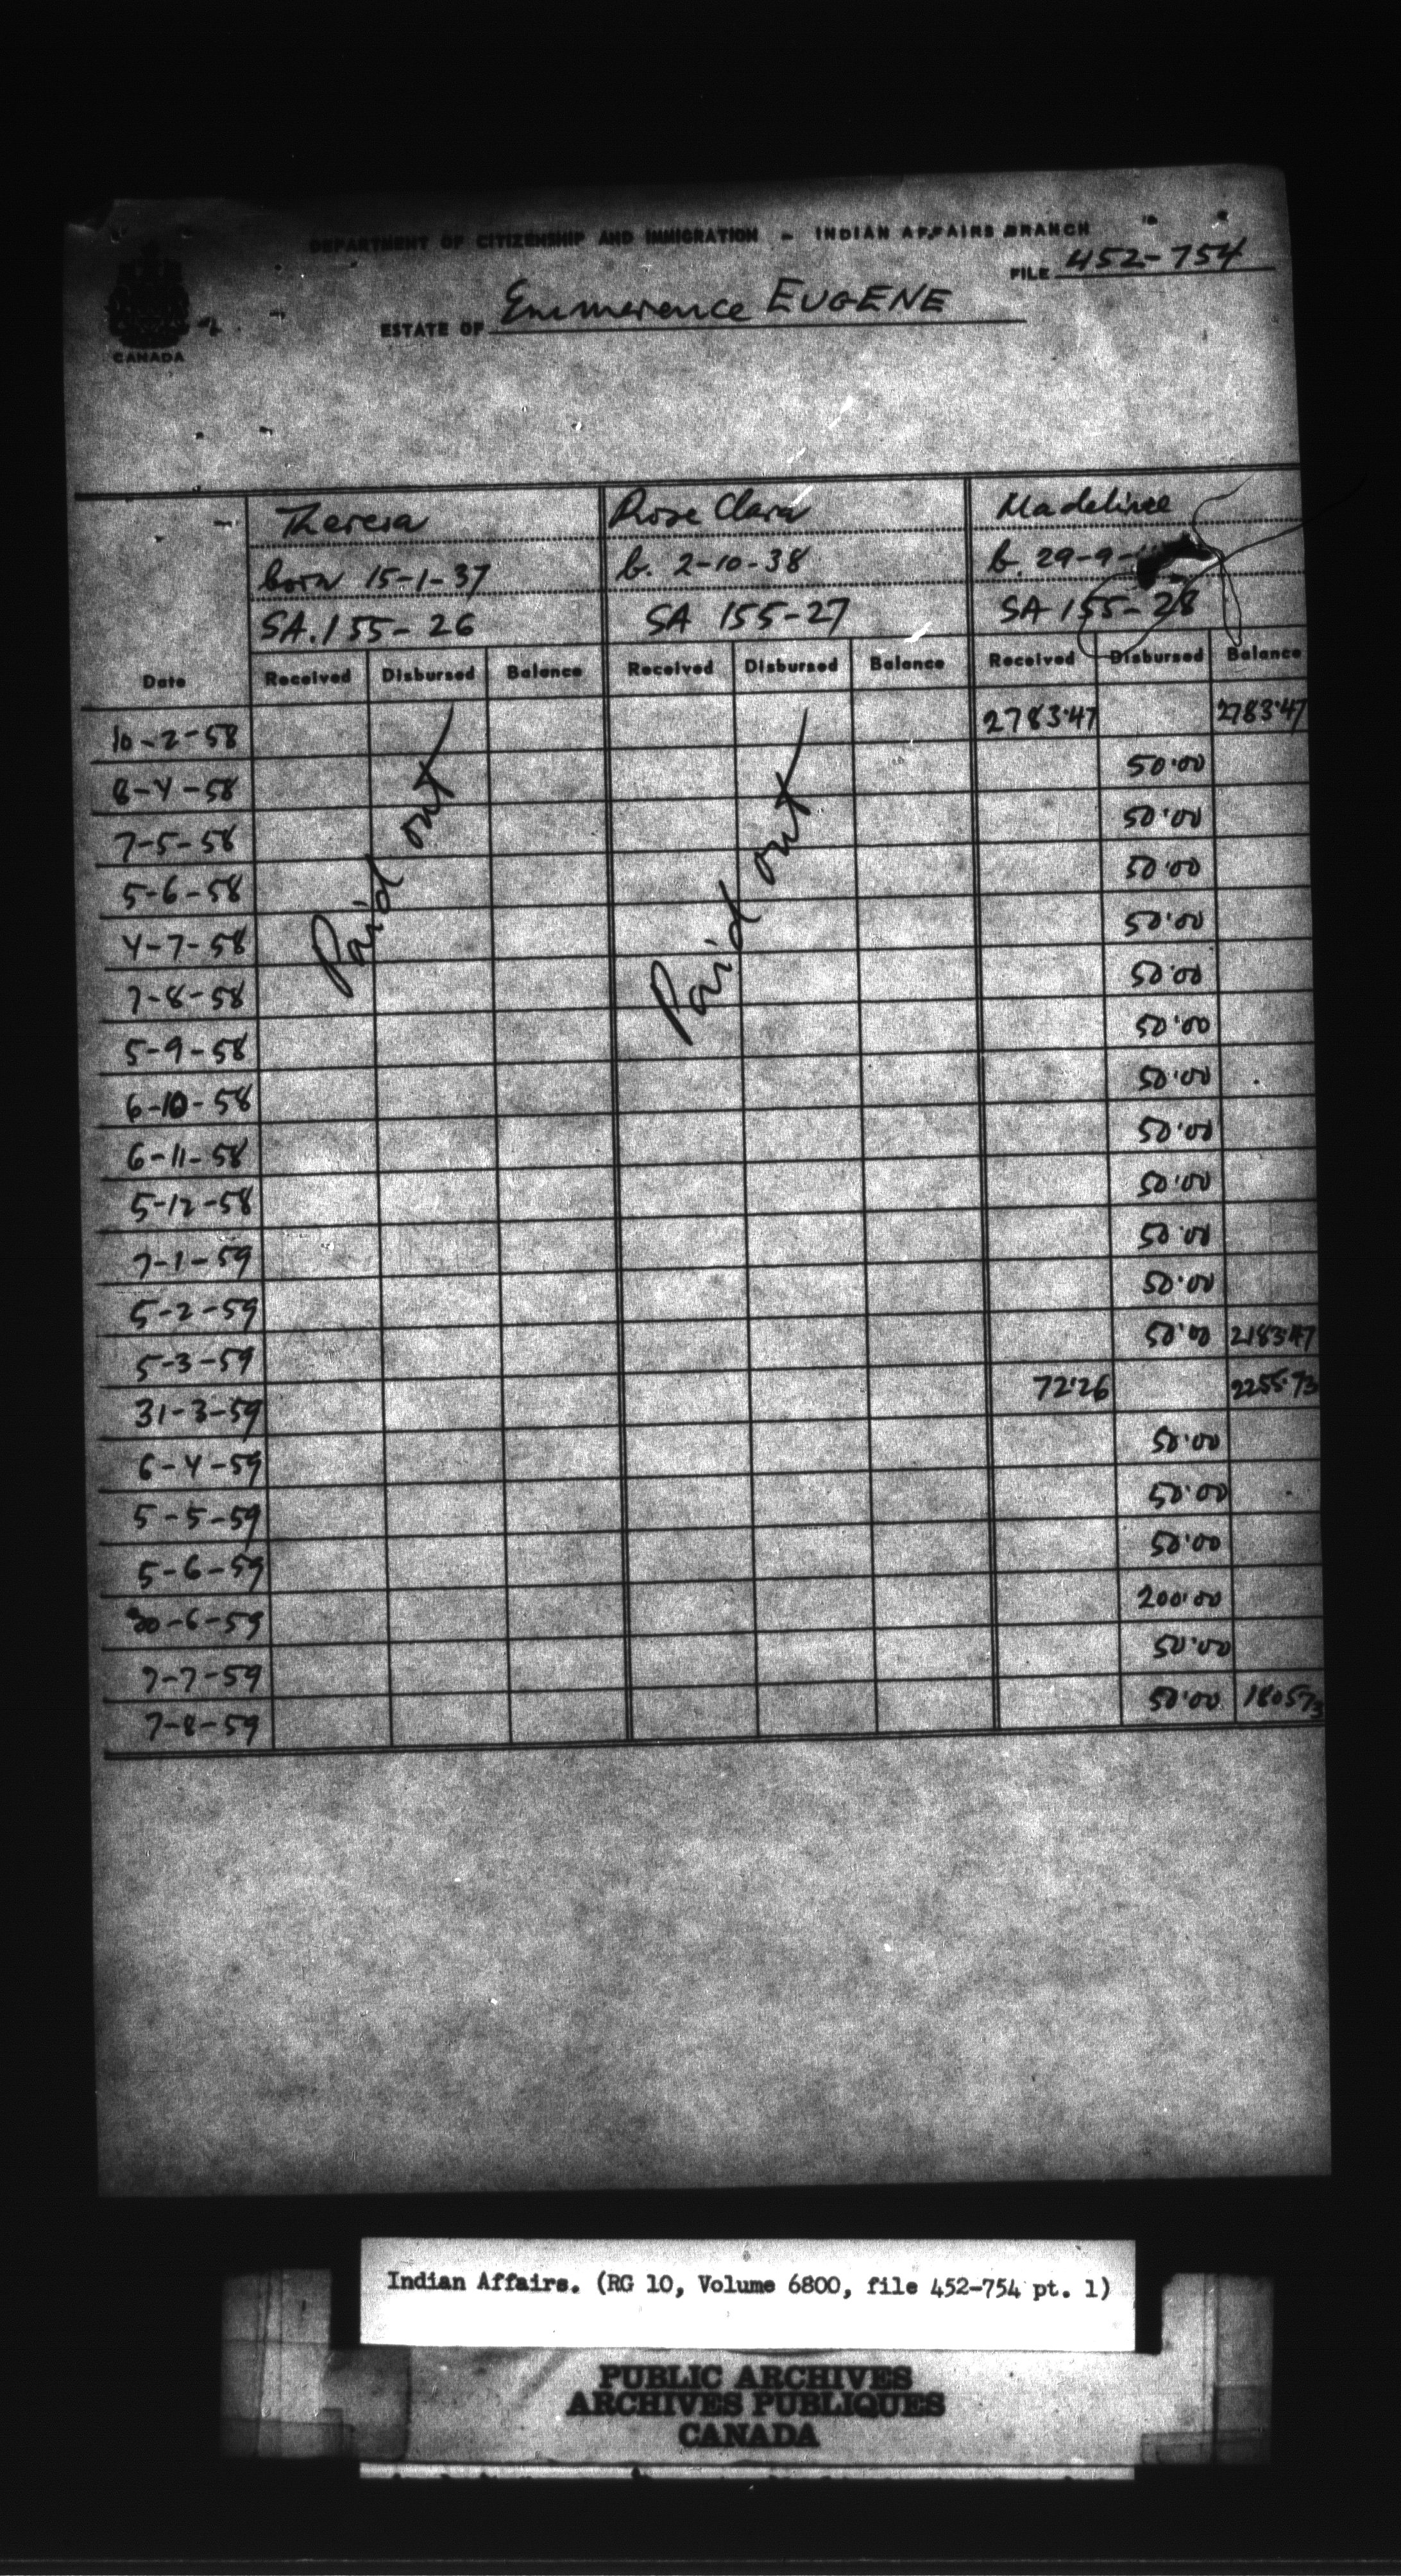 DEPARTMENT OF CITIZENSHIP AND IMMIGRATION - INDIAN AFFAIRS BRANCH
FILE 452-754
ESTATE OF Emmerence EUGENE
CANADA
Theresa Rose Clara Madeline
born 15-1-37 b. 2-10-38 b. 29-9-
SA. 155-26 SA 155-27 SA 155-28
Date Received Disbursed Balance Received Disbursed Balance Received Disbursed Balance
Paid out Paid out
10-2-58 2783.47 2783.47
8-4-58 50.00
7-5-58 50.00
5-6-58 50.00
4-7-58 50.00
7-8-58 50.00
5-9-58 50.00
6-10-58 50.00
6-11-58 50.00
5-12-58 50.00
7-1-59 50.00
5-2-59 50.00
5-3-59 50.00 2183.47
31-3-59 72.26 2255.73
6-4-59 50.00
5-5-59 50.00
5-6-59 50.00
30-6-59 200.00
7-7-59 50.00
7-8-59 50.00 1805.73
Indian Affairs. (RG 10, Volume 6800, file 452-754 pt. 1)
PUBLIC ARCHIVES
ARCHIVES PUBLIQUES
CANADA